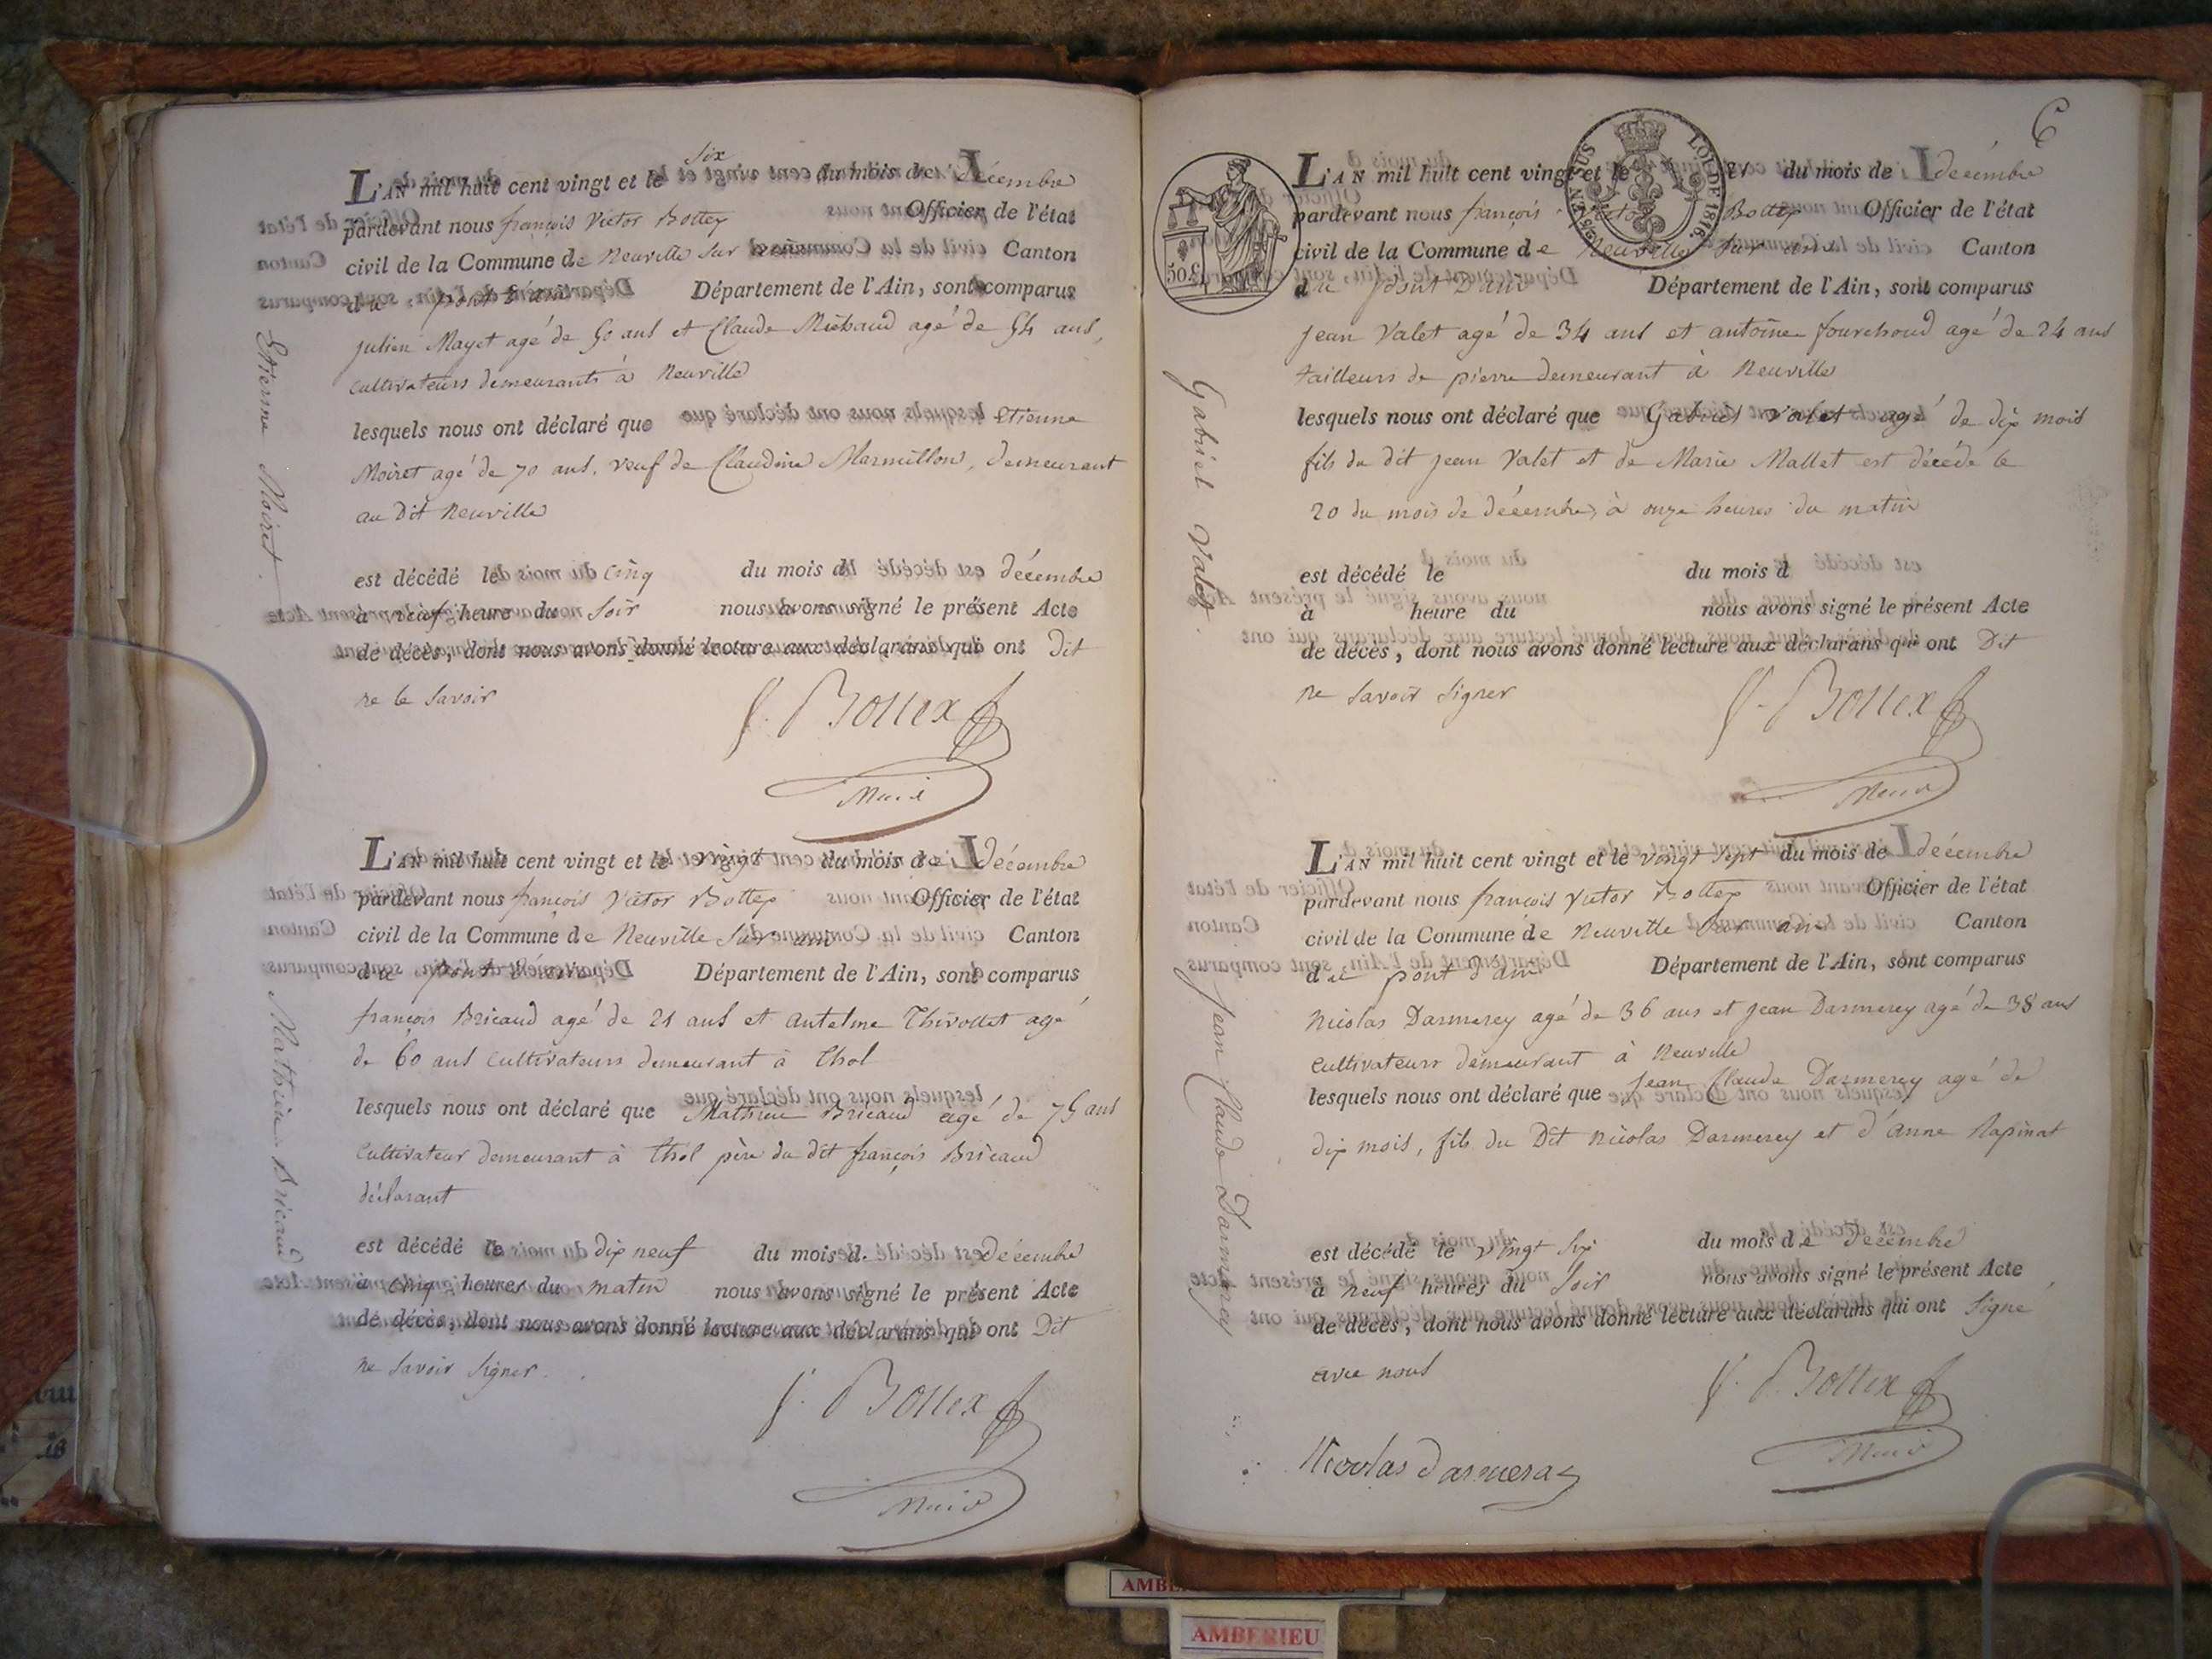 six
L'AN mil huit cent vingt et le du mois de décembre
pardevant nous françois Victor Bottex Officier de l'état
civil de la Commune de Neuville sur ain Canton
du pont d'ain Département de l'Ain, sont comparus
julien Mayet agé de 50 ans et Claude Michaud agé de 54 ans,
cultivateurs demeurants à Neuville
lesquels nous ont déclaré que Etienne
Moiret agé de 70 ans, veuf de Claudine Marmillon, demeurant
au dit Neuville
est décédé le cinq du mois d décembre
à neuf heure du soir nous avons signé le présent Acte
de décès, dont nous avons donné lecture aux déclarans qui ont dit
ne le savoir
f. Bottex
Maire
Etienne Moiret.
L'AN mil huit cent vingt et le vingt du mois de décembre
pardevant nous françois Victor Bottex Officier de l'état
civil de la Commune de Neuville sur ain Canton
du pont d'ain Département de l'Ain, sont comparus
françois Bricaud agé de 21 ans et antelme Thivollet agé
de 60 ans cultivateurs demeurant à thol
lesquels nous ont déclaré que Mathieu Bricaud agé de 75 ans
cultivateur demeurant à thol père du dit françois Bricaud
déclarant
est décédé le dix neuf du mois d décembre
à cinq heures du matin nous avons signé le présent Acte
de décès, dont nous avons donné lecture aux déclarans qui ont dit
ne savoir signer.
f. Bottex
Maire
Mathieu Bricaud
6
L'AN mil huit cent vingt et le 21 du mois de décembre
pardevant nous françois Victor Bottex Officier de l'état
civil de la Commune de Neuville sur ain Canton
du pont d'ain Département de l'Ain, sont comparus
LOI DE 1816.
50 C.
jean Valet agé de 34 ans et antoine fourchoud agé de 24 ans
tailleurs de pierre demeurant à Neuville
lesquels nous ont déclaré que Gabriel Valet agé de dix mois
fils du dit jean Valet et de Marie Mallet est décédé le
20 du mois de décembre, à onze heures du matin
est décédé le du mois d
à heure du nous avons signé le présent Acte
de décès, dont nous avons donné lecture aux déclarans qui ont dit
ne savoir signer
f. Bottex
Maire
Gabriel Valet.
L'AN mil huit cent vingt et le vingt sept du mois de décembre
pardevant nous françois Victor Bottex Officier de l'état
civil de la Commune de Neuville sur ain Canton
du pont d'ain Département de l'Ain, sont comparus
Nicolas Darmerey agé de 36 ans et jean Darmerey agé de 38 ans
cultivateurs demeurant à Neuville
lesquels nous ont déclaré que jean Claude Darmerey agé de
dix mois, fils du Dit Nicolas Darmerey et d'anne Rapinat
est décédé le vingt six du mois de décembre
à neuf heures du soir nous avons signé le présent Acte
de décès, dont nous avons donné lecture aux déclarans qui ont signé
avec nous
f. Bottex
Maire
Nicolas darmeray
Jean Claude Darmerey
AMBERIEU